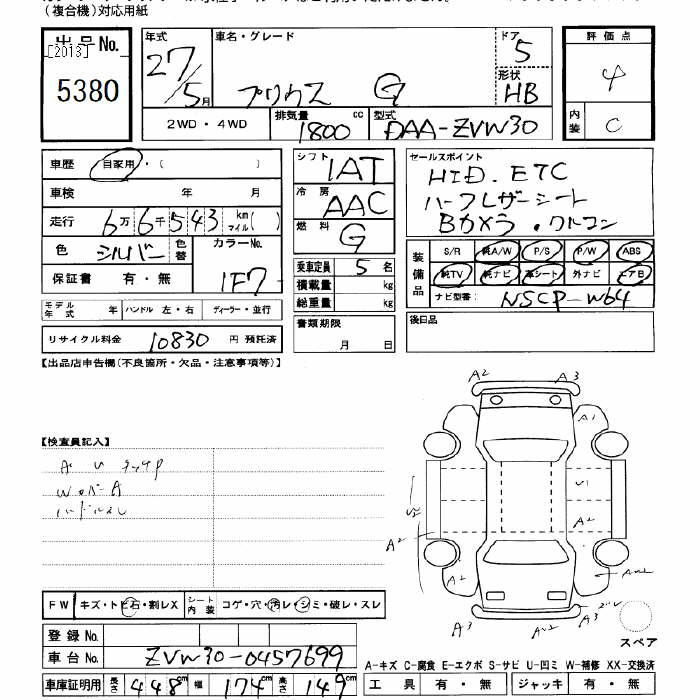 (複合機)対応用紙
出品No.
[2013]
5380
年式
27/5月
車名・グレード
プリウス G
ドア
5
形状
HB
評価点
4
内装
C
2WD・4WD
排気量
1800 cc
型式
DAA-ZVW30
車歴 自家用・( )
車検 年 月
走行 6万6千543 km マイル( )
色 シルバー 色替
カラーNo.
1F7
保証書 有・無
モデル年式 年 ハンドル 左・右 ディーラー・並行
リサイクル料金 10830 円 預託済
シフト 1AT
冷房 AAC
燃料 G
乗車定員 5 名
積載量 kg
総重量 kg
書類期限
月 日
セールスポイント
HID. ETC
ハーフレザーシート
Bカメラ・クルコン
装備品
S/R 純A/W P/S P/W ABS
純TV 純ナビ 革シート 外ナビ エアB
ナビ型番: NSCP-W64
後日品
【出品店申告欄(不良箇所・欠品・注意事項等)】
【検査員記入】
A2 A3
A1
U1
A2
A2
A2
A3 A3
スペア
FW キズ・トビ石・割レX シート内装 コゲ・穴・汚レ・シミ・破レ・スレ
登録No.
車台No. ZVW30-0457699
車庫証明用 長さ 448 cm 幅 174 cm 高さ 149 cm
A-キズ C-腐食 E-エクボ S-サビ U-凹ミ W-補修 XX-交換済
工具 有・無 ジャッキ 有・無